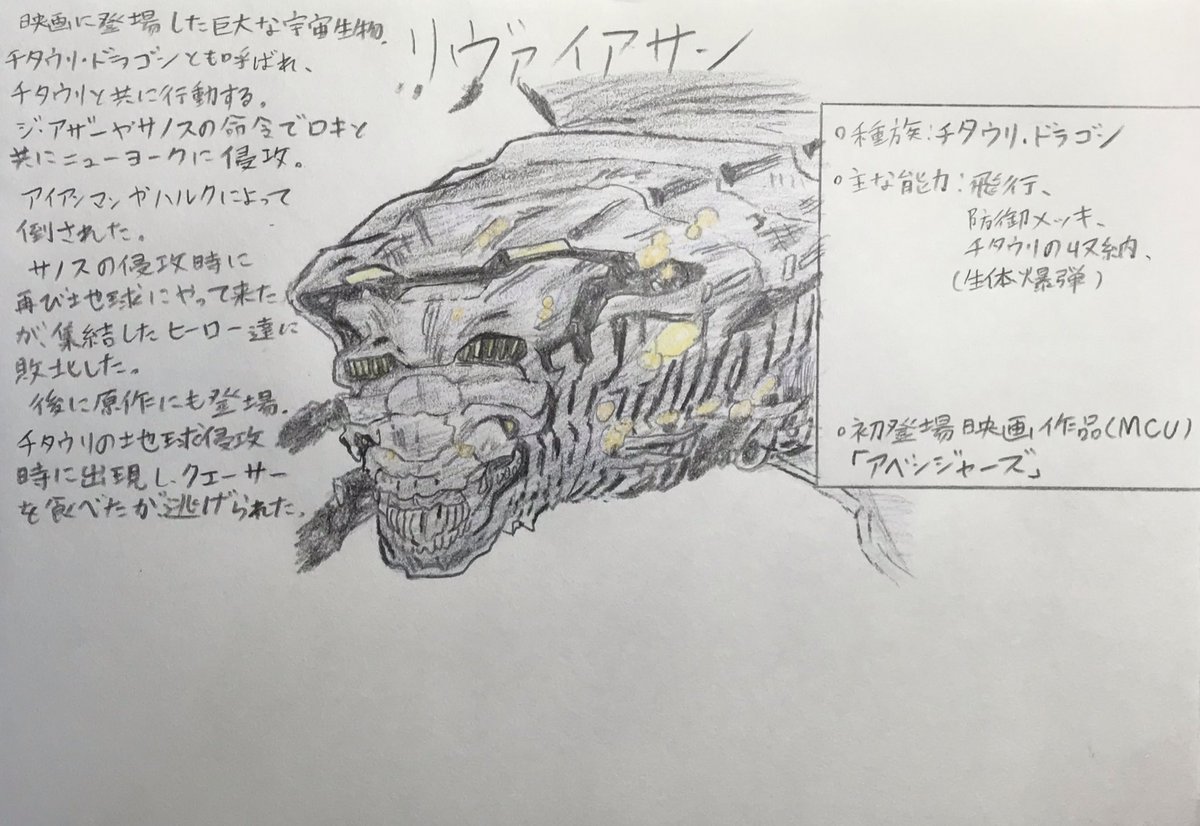 リヴァイアサン
映画に登場した巨大な宇宙生物。
チタウリ・ドラゴンとも呼ばれ、
チタウリと共に行動する。
ジ・アザーやサノスの命令でロキと
共にニューヨークに侵攻。
アイアンマンやハルクによって
倒された。
サノスの侵攻時に
再び地球にやって来た
が、集結したヒーロー達に
敗北した。
後に原作にも登場。
チタウリの地球侵攻
時に出現し、クエーサー
を食べたが逃げられた。
○種族:チタウリ・ドラゴン
○主な能力:飛行、
防御メッキ、
チタウリの収納、
(生体爆弾)
○初登場映画作品(MCU)
「アベンジャーズ」